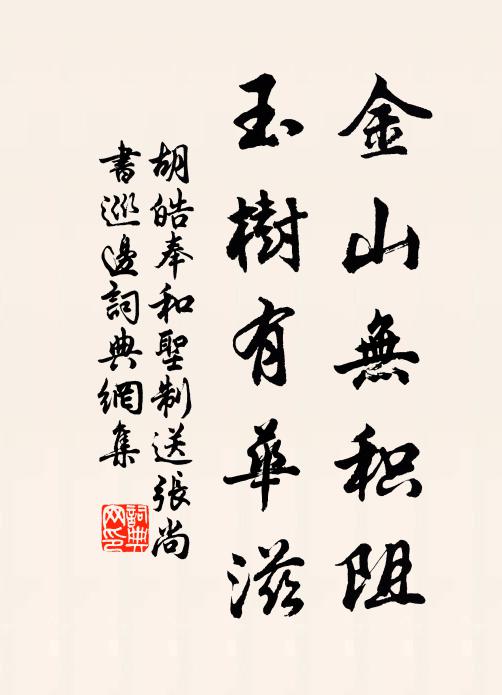 金山無积阻
玉樹有華滋
胡皓奉和聖制送張尚
書巡邊詞典網集
詞典
网印